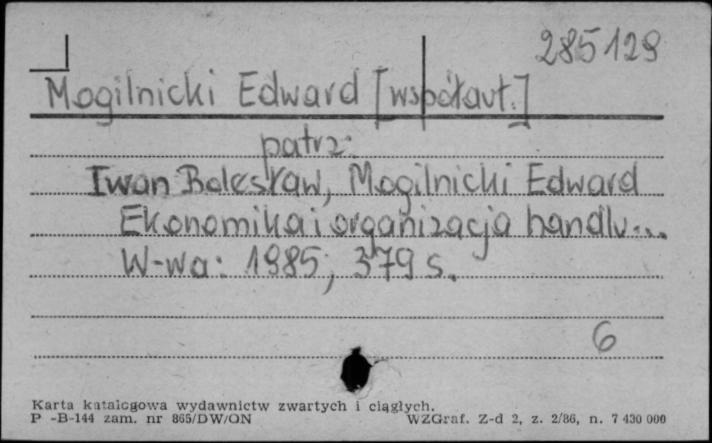 285129
Mogilnicki Edward [współaut.]
patrz:
Iwan Bolesław, Mogilnicki Edward
Ekonomika i organizacja handlu...
W-wa: 1985, 379 s.
6
Karta katalogowa wydawnictw zwartych i ciągłych.
P -B-144 zam. nr 865/DW/ON WZGraf. Z-d 2, z. 2/86, n. 7 430 000